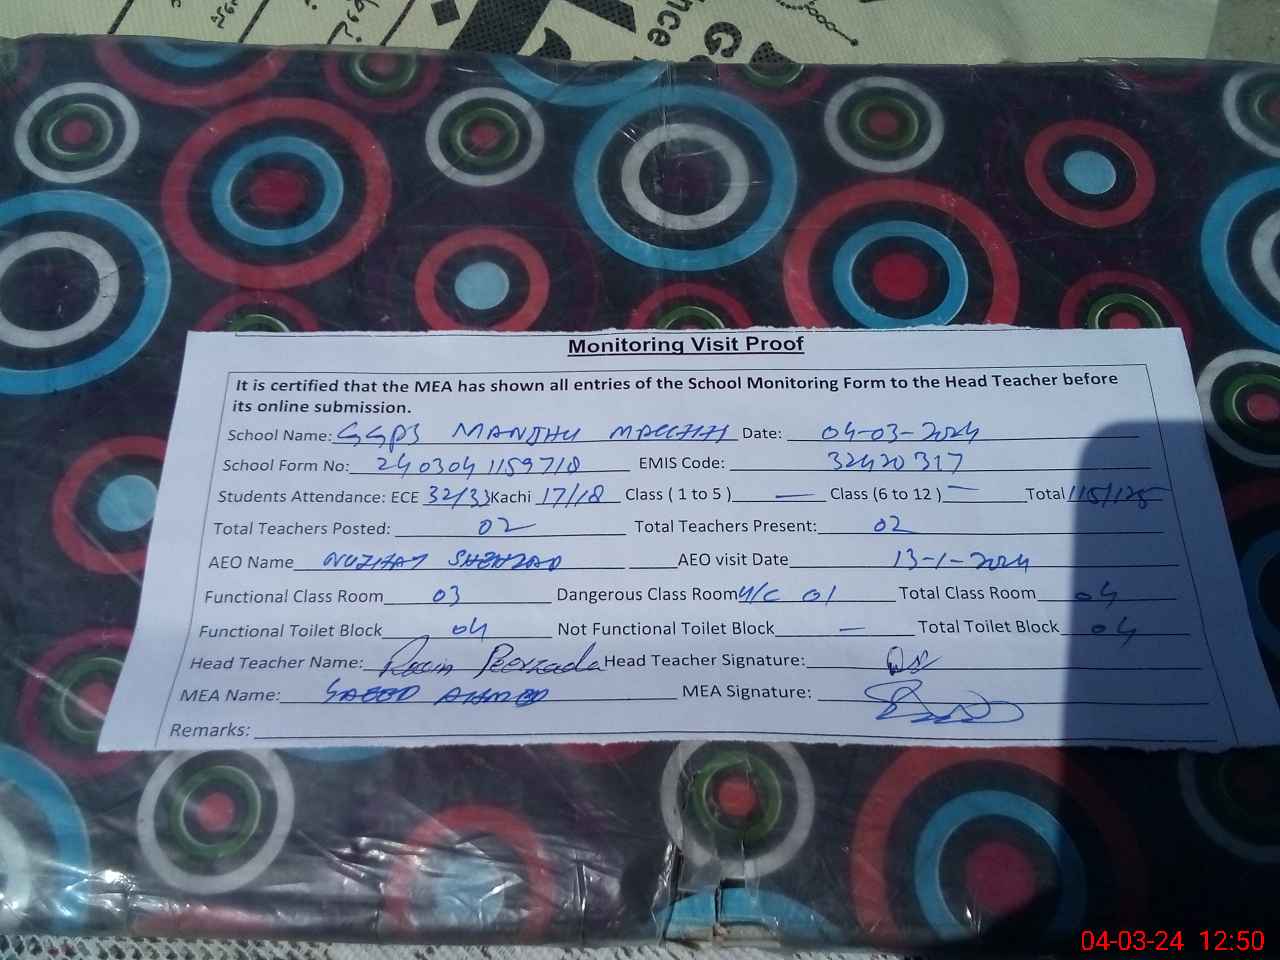 nce
G
Monitoring Visit Proof
It is certified that the MEA has shown all entries of the School Monitoring Form to the Head Teacher before
its online submission.
School Name: GGPS MANJHU Date: 04-03-2024
School Form No: 240304 1159718 EMIS Code: 32420317
Students Attendance: ECE 32/33 Kachi 17/18 Class ( 1 to 5 ) — Class (6 to 12 ) — Total 115/125
Total Teachers Posted: 02 Total Teachers Present: 02
AEO Name NUZHAT SHEHZAD AEO visit Date 13-1-2024
Functional Class Room 03 Dangerous Class Room U/C 01 Total Class Room 04
Functional Toilet Block 04 Not Functional Toilet Block — Total Toilet Block 04
Head Teacher Name: Peerzada Head Teacher Signature:
MEA Name: SAEED AHMED MEA Signature:
Remarks:
04-03-24 12:50